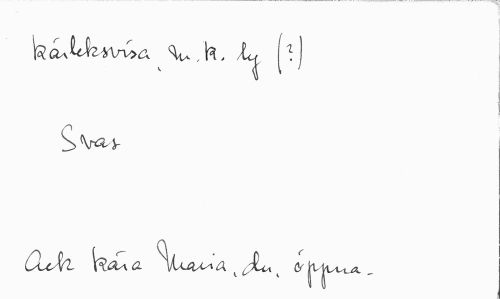 kärleksvisa, m. k. ly (?)
Svar
Ack kära Maria, du, öppna.